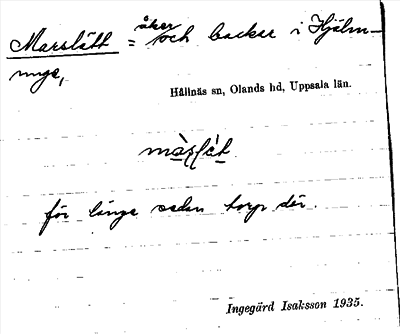 Marslätt = åker och backe i Hjälm-
unge,
Hållnäs sn, Olands hd, Uppsala län.
för länge sedan torp där.
Ingegärd Isaksson 1935.